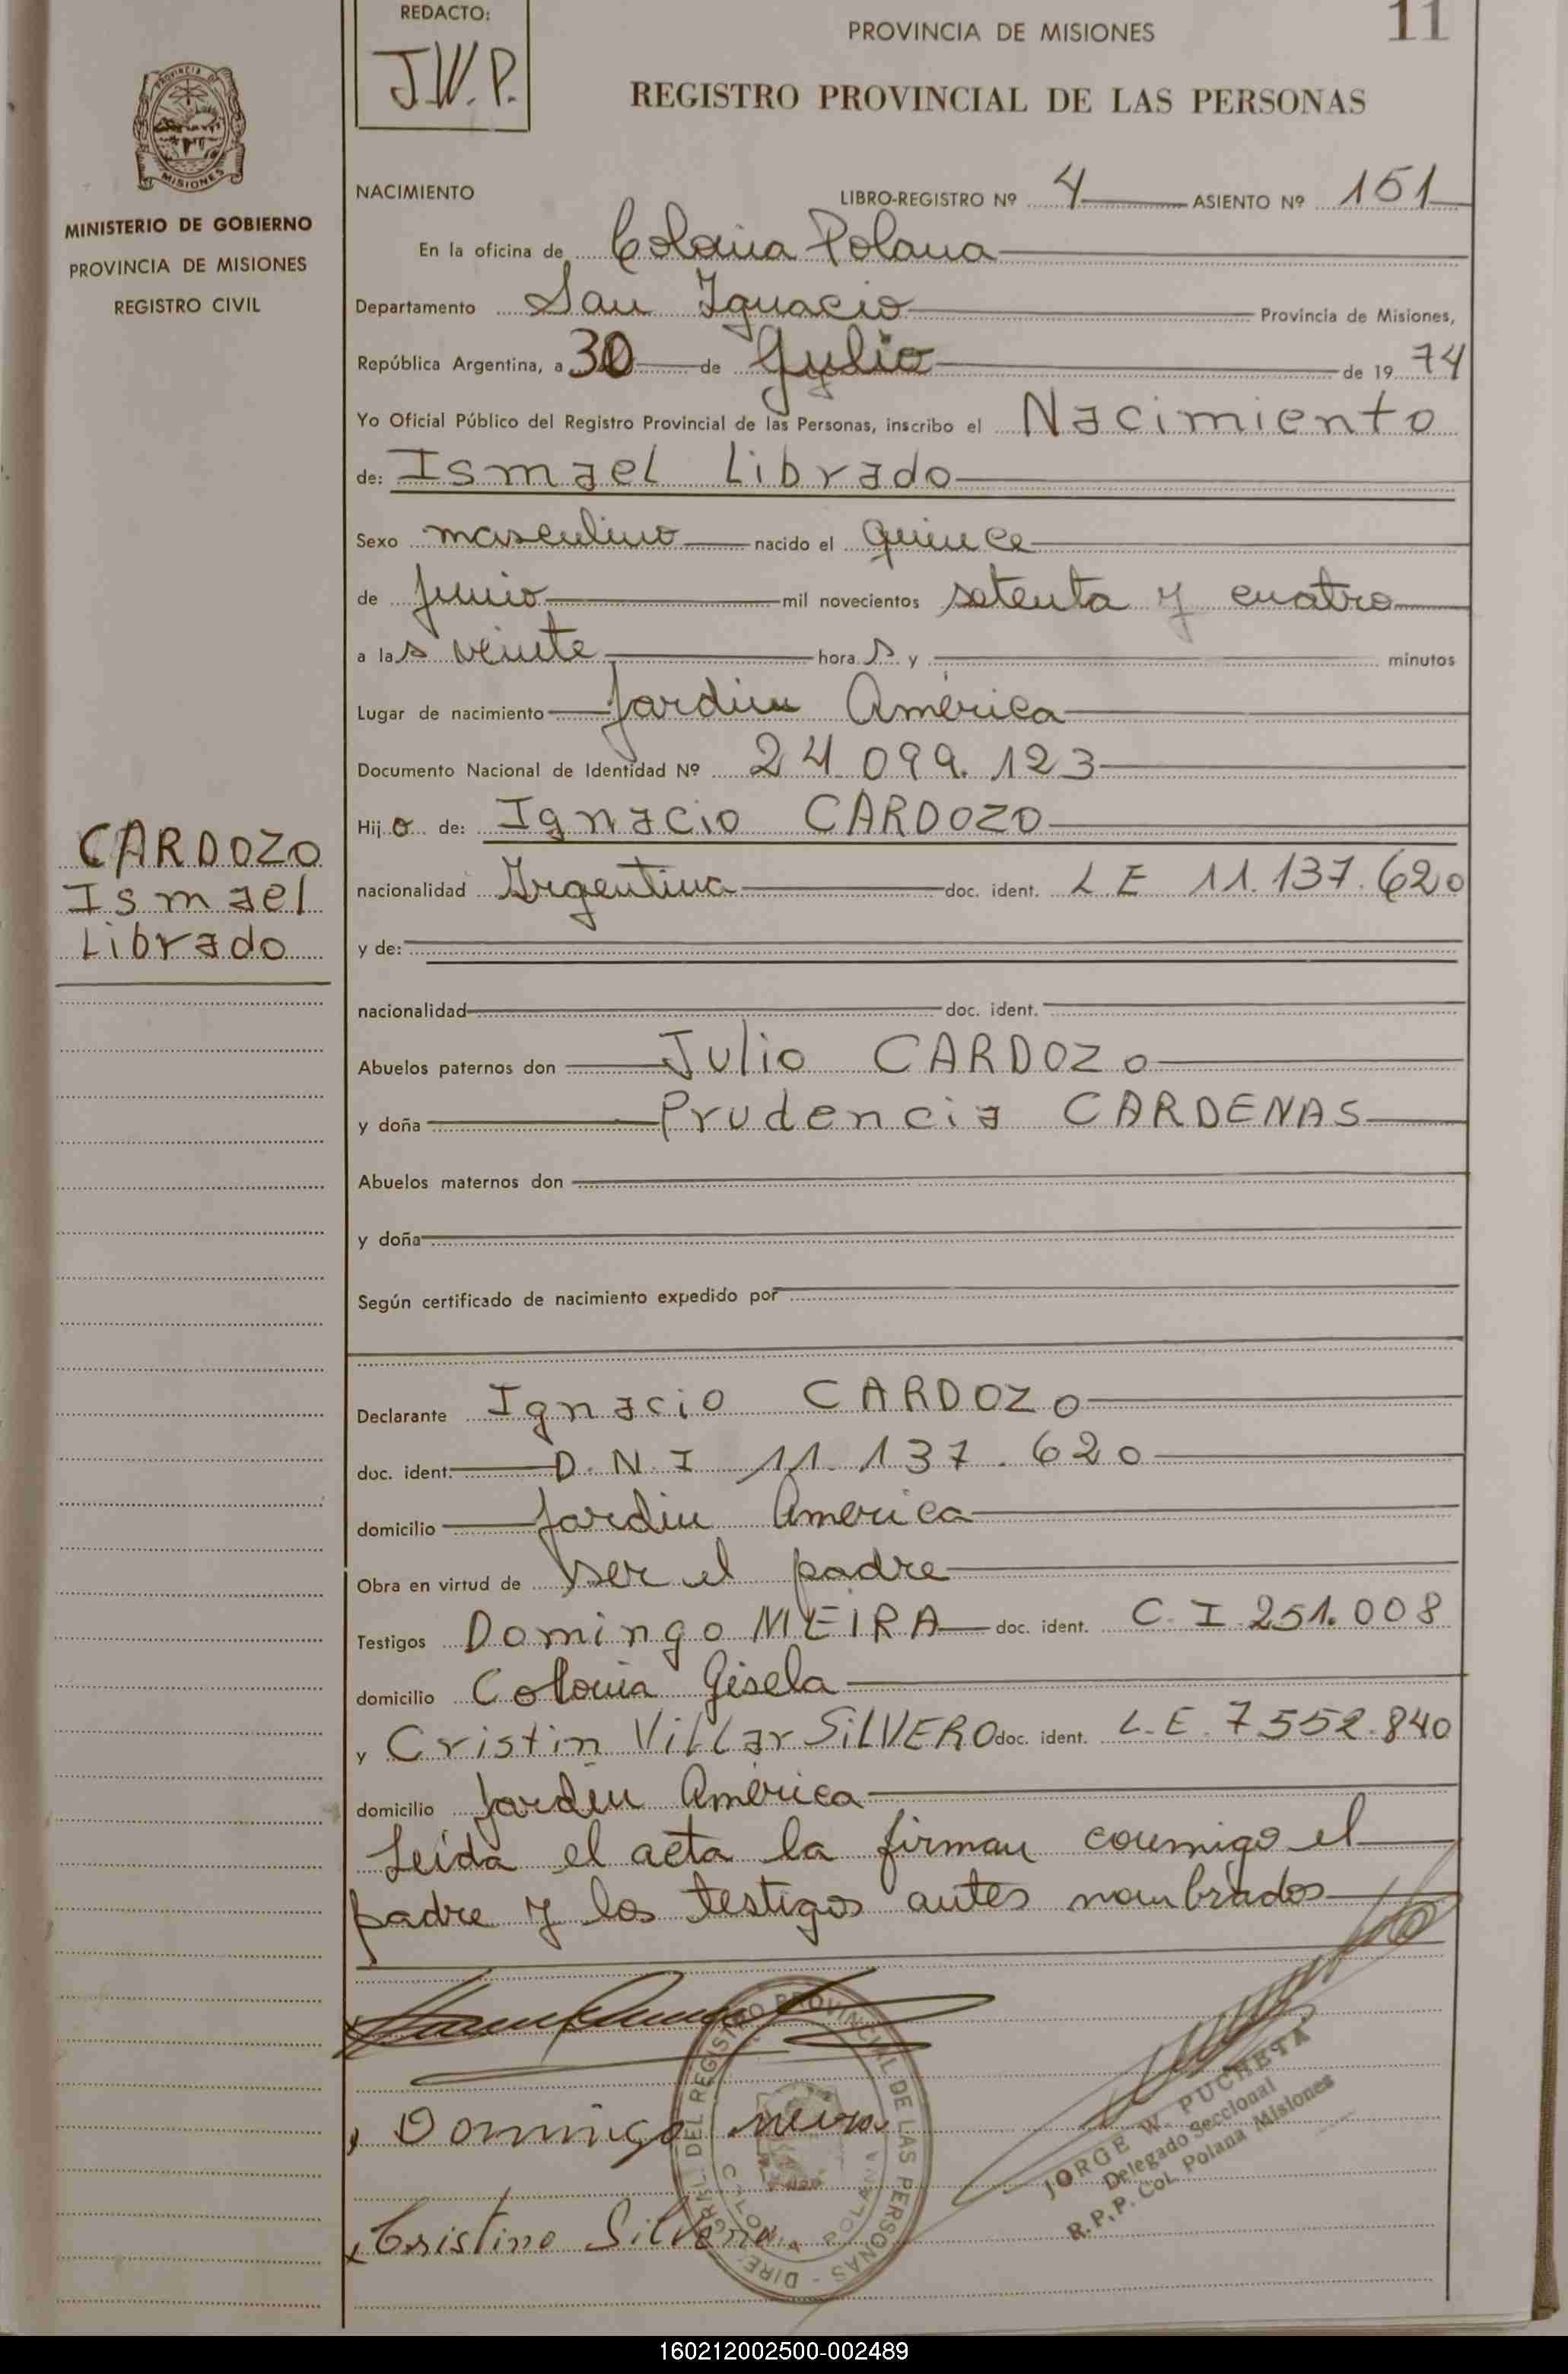 REDACTO:
J.W.P.
PROVINCIA DE MISIONES
11
REGISTRO PROVINCIAL DE LAS PERSONAS
PROVINCIA DE MISIONES
MINISTERIO DE GOBIERNO
PROVINCIA DE MISIONES
REGISTRO CIVIL
NACIMIENTO LIBRO-REGISTRO Nº 4 ASIENTO Nº 151
En la oficina de Colonia Polana
Departamento San Ignacio Provincia de Misiones,
República Argentina, a 30 de Julio de 1974
Yo Oficial Público del Registro Provincial de las Personas, inscribo el Nacimiento
de: Ismael Librado
Sexo masculino nacido el quince
de junio mil novecientos setenta y cuatro
a las veinte horas y minutos
Lugar de nacimiento Jardin América
Documento Nacional de Identidad Nº 24.099.123
CARDOZO
Ismael
Librado
Hijo de: Ignacio CARDOZO
nacionalidad Argentina doc. ident. L E 11.137.620
y de:
nacionalidad doc. ident.
Abuelos paternos don Julio CARDOZO
y doña Prudencia CARDENAS
Abuelos maternos don
y doña
Según certificado de nacimiento expedido por
Declarante Ignacio CARDOZO
doc. ident. D.N.I 11.137.620
domicilio Jardin America
Obra en virtud de ser el padre
Testigos Domingo MEIRA doc. ident. C.I 251.008
domicilio Colonia Gisela
y Cristin Villar SiLVERO doc. ident. L.E. 7.552.840
domicilio Jardin América
Leída el acta la firman conmigo el
padre y los testigos antes nombrados
Domingo meira
Cristino Silvero
DIREC. GRAL. DEL REGISTRO PROVINCIAL DE LAS PERSONAS
COLONIA POLANA
JORGE W. PUCHETA
Delegado Seccional
R.P.P. Col. Polana Misiones
160212002500-002489